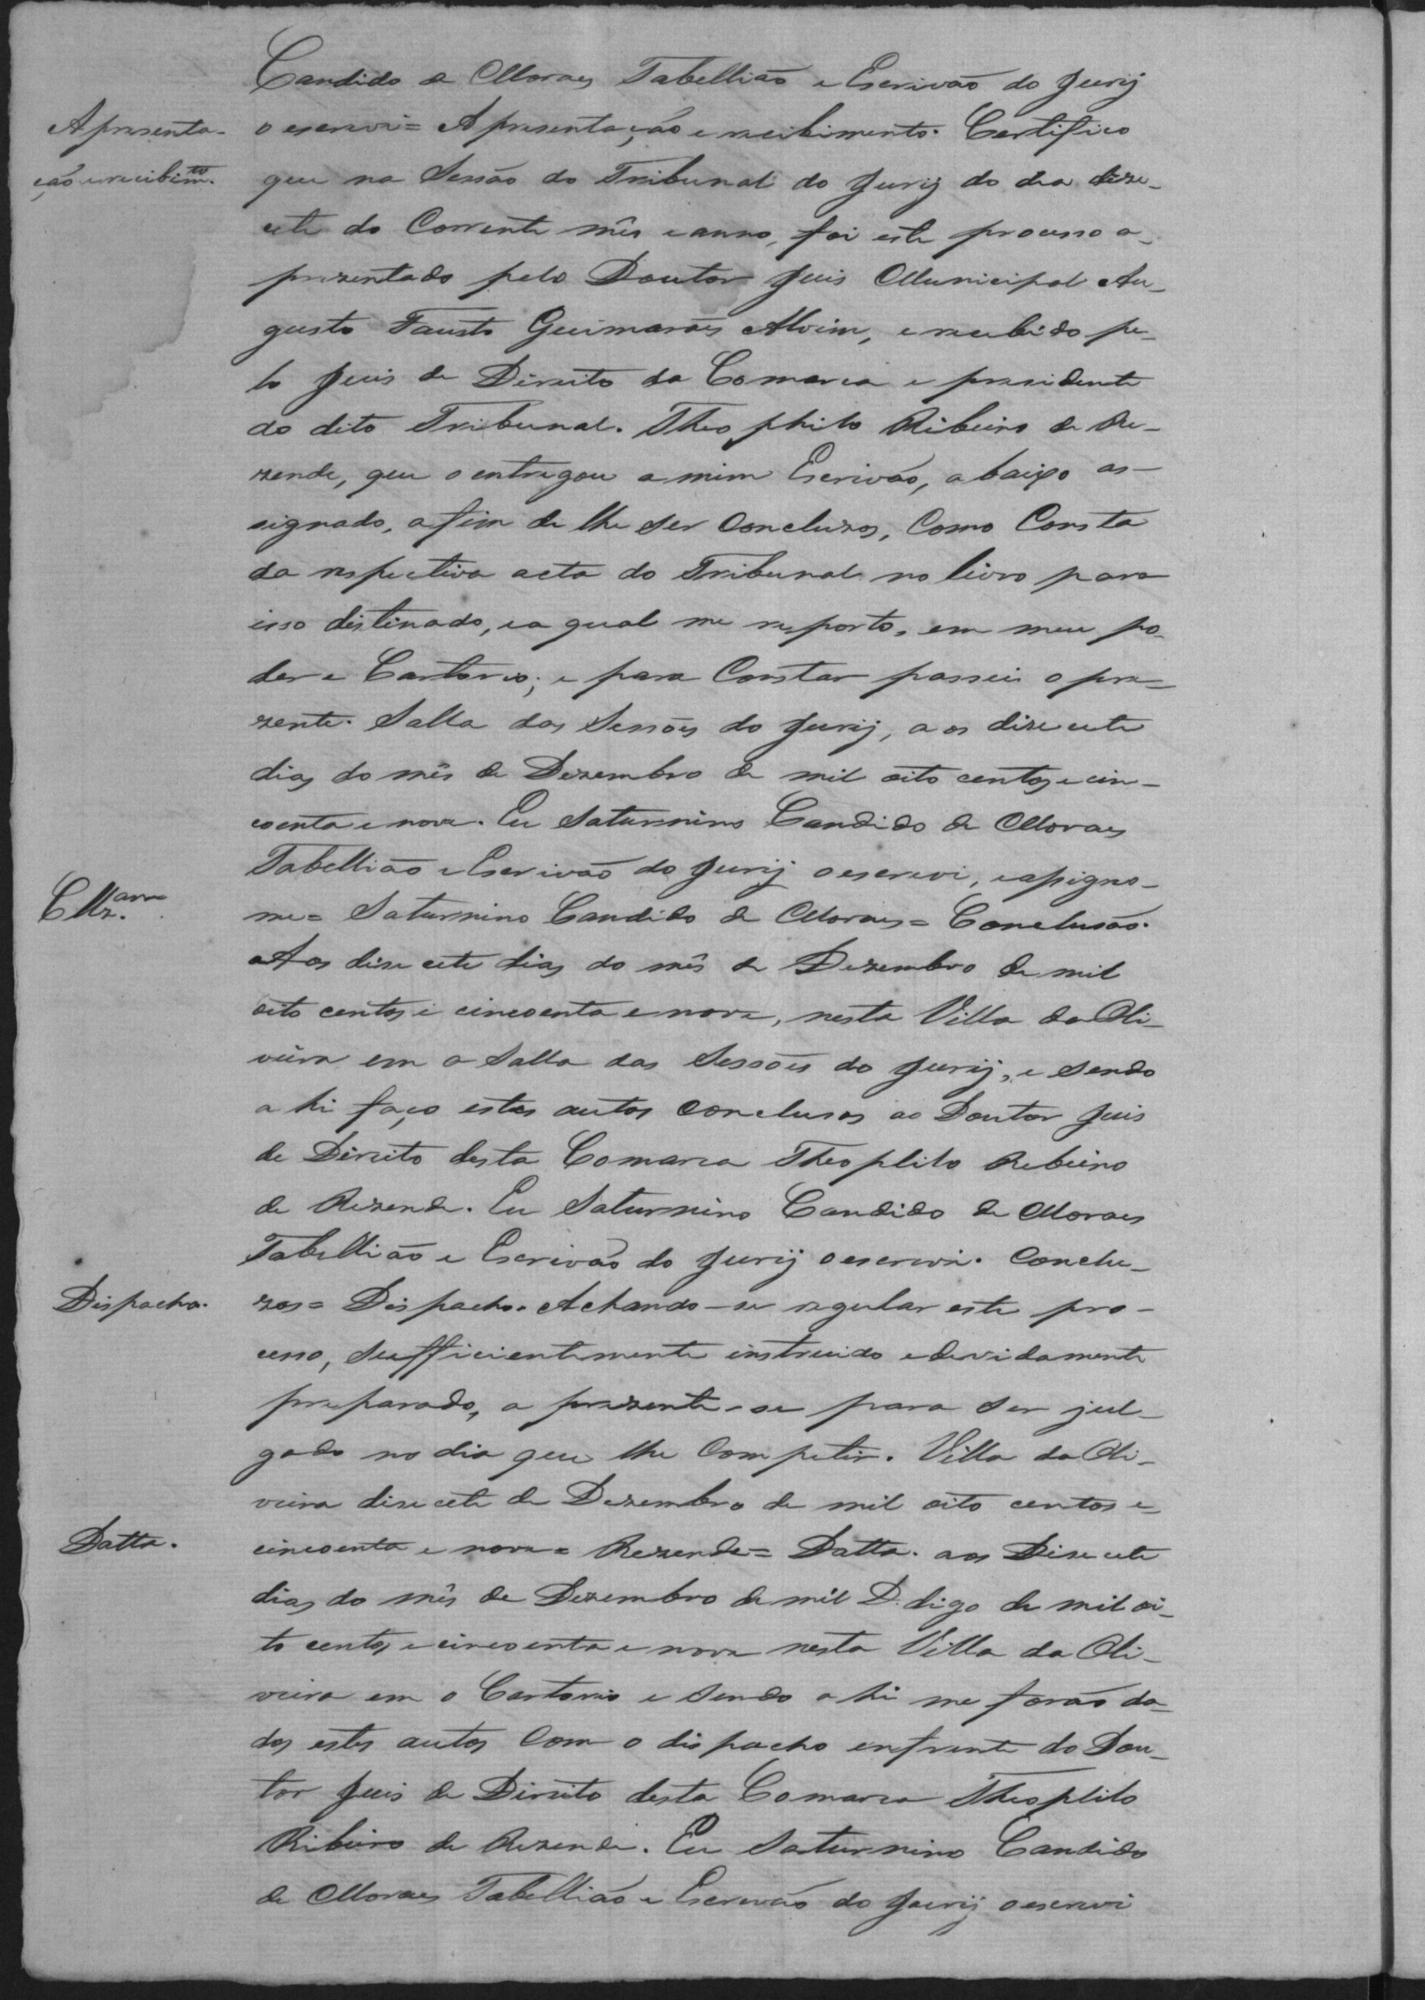 Candido de Moraes Tabellião e Escrivão do Jury
Apresenta-
o escrevi = Apresentação e recibimento. Certifico
ção e recibimto.
que na Sessão do Tribunal do Jury do dia dise-
cete do Corrente mês e anno, foi este processo a-
prezentado pelo Doutor Juis Municipal Au-
gusto Fausto Guimarães Alvim, e recebido pe-
lo Juis de Direito da Comarca e presidente
do dito Tribunal. Theophilo Ribeiro de Re-
zende, que o entregou a mim Escrivão, abaixo as-
signado, afim de lhe ser Concluzos, Como Consta
da respectiva acta do Tribunal no livro para
isso destinado, e a qual me reporto, em meu po-
der e Cartorio; e para Constar passei o pre-
zente. Salla das Sessões do Jury, aos disecete
dias do mês de Dezembro de mil oito centos e cin-
coenta e nove. Eu Saturnino Candido de Moraes
Tabellião e Escrivão do Jury o escrevi, e assigno-
me = Saturnino Candido de Moraes = Conclusão.
Aos disecete dias do mês de Dezembro de mil
oito centos e cincoenta e nove, nesta Villa da Oli-
veira em a Salla das Sessões do Jury, e sendo
ahi faço estes autos conclusos ao Doutor Juis
de Direito desta Comarca Theophilo Ribeiro
de Rezende. Eu Saturnino Candido de Moraes
Tabellião e Escrivão do Jury o escrevi. Conclu-
Dispacho.
zos = Dispacho. Achando-se regular este pro-
cesso, sufficientimente instruido e devidamente
preparado, aprezente-se para ser jul-
gado no dia que lhe Competir. Villa da Oli-
veira disecete de Dezembro de mil oito centos e
Datta.
cincoenta e nove = Rezende = Datta. aos Disecete
dias do mês de Dezembro de mil D. digo de mil oi-
to centos e cincoenta e nove nesta Villa da Oli-
veira em o Cartorio e sendo ahi me forão da-
dos estes autos Com o dispacho enfrente do Dou-
tor Juis de Direito desta Comarca Theophilo
Ribeiro de Rezende. Eu Saturnino Candido
de Moraes Tabellião e Escrivão do Jury o escrevi